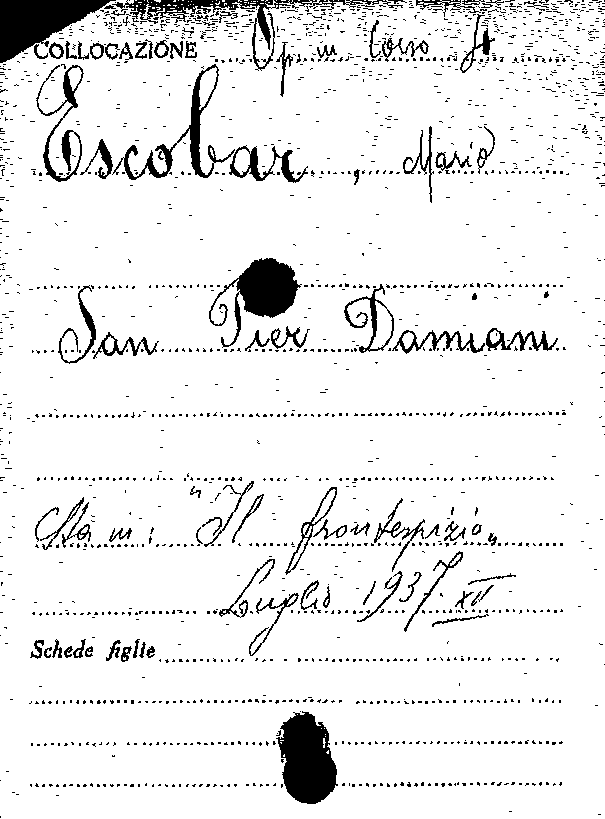 COLLOCAZIONE Op in Corso
Escobar, Mario
San Pier Damiani
Sta in: "Il frontespizio"
Luglio 1937. XV
Schede figlie